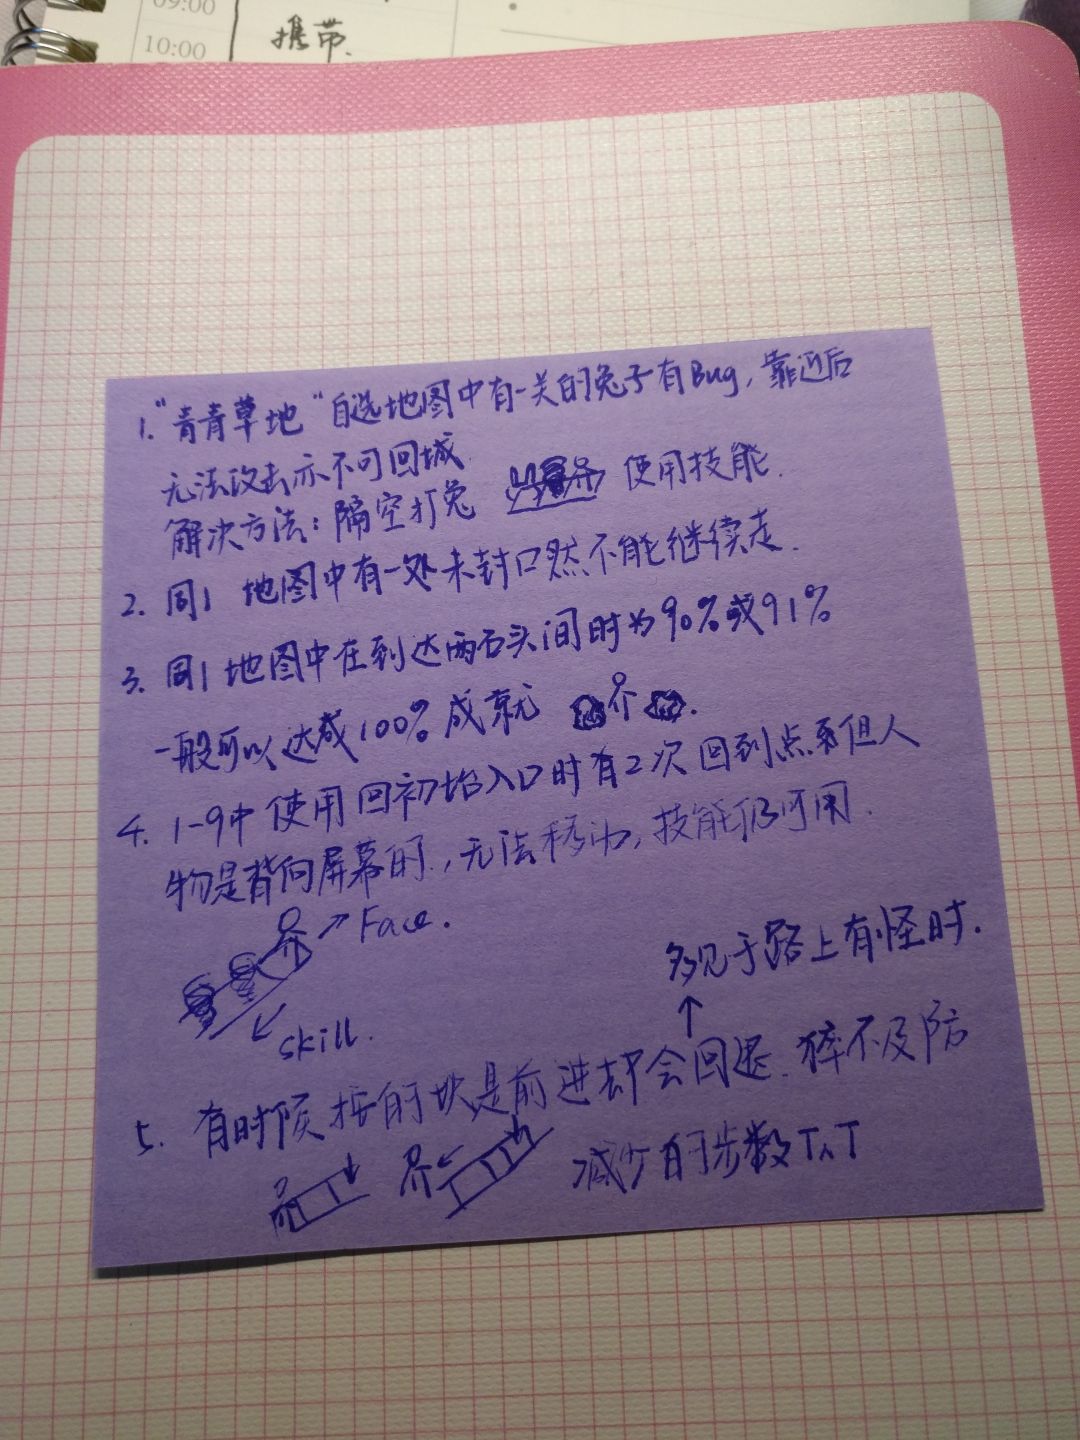 09:00
10:00
携带.
1."青青草地"自选地图中有一关的兔子有Bug,靠近后
无法攻击亦不可回城
解决方法:隔空打兔 使用技能.
2. 同1 地图中有一处未封口然不能继续走.
3. 同1地图中在到达两石头间时为90%或91%
一般可以达成100%成就
4. 1-9中使用回初始入口时有2次回到点系但人
物是背向屏幕的,无法移动,技能仍可用.
Face.
skill.
多见于路上有怪时.
5. 有时候按的块是前进却会回退.猝不及防
减少的步数TAT